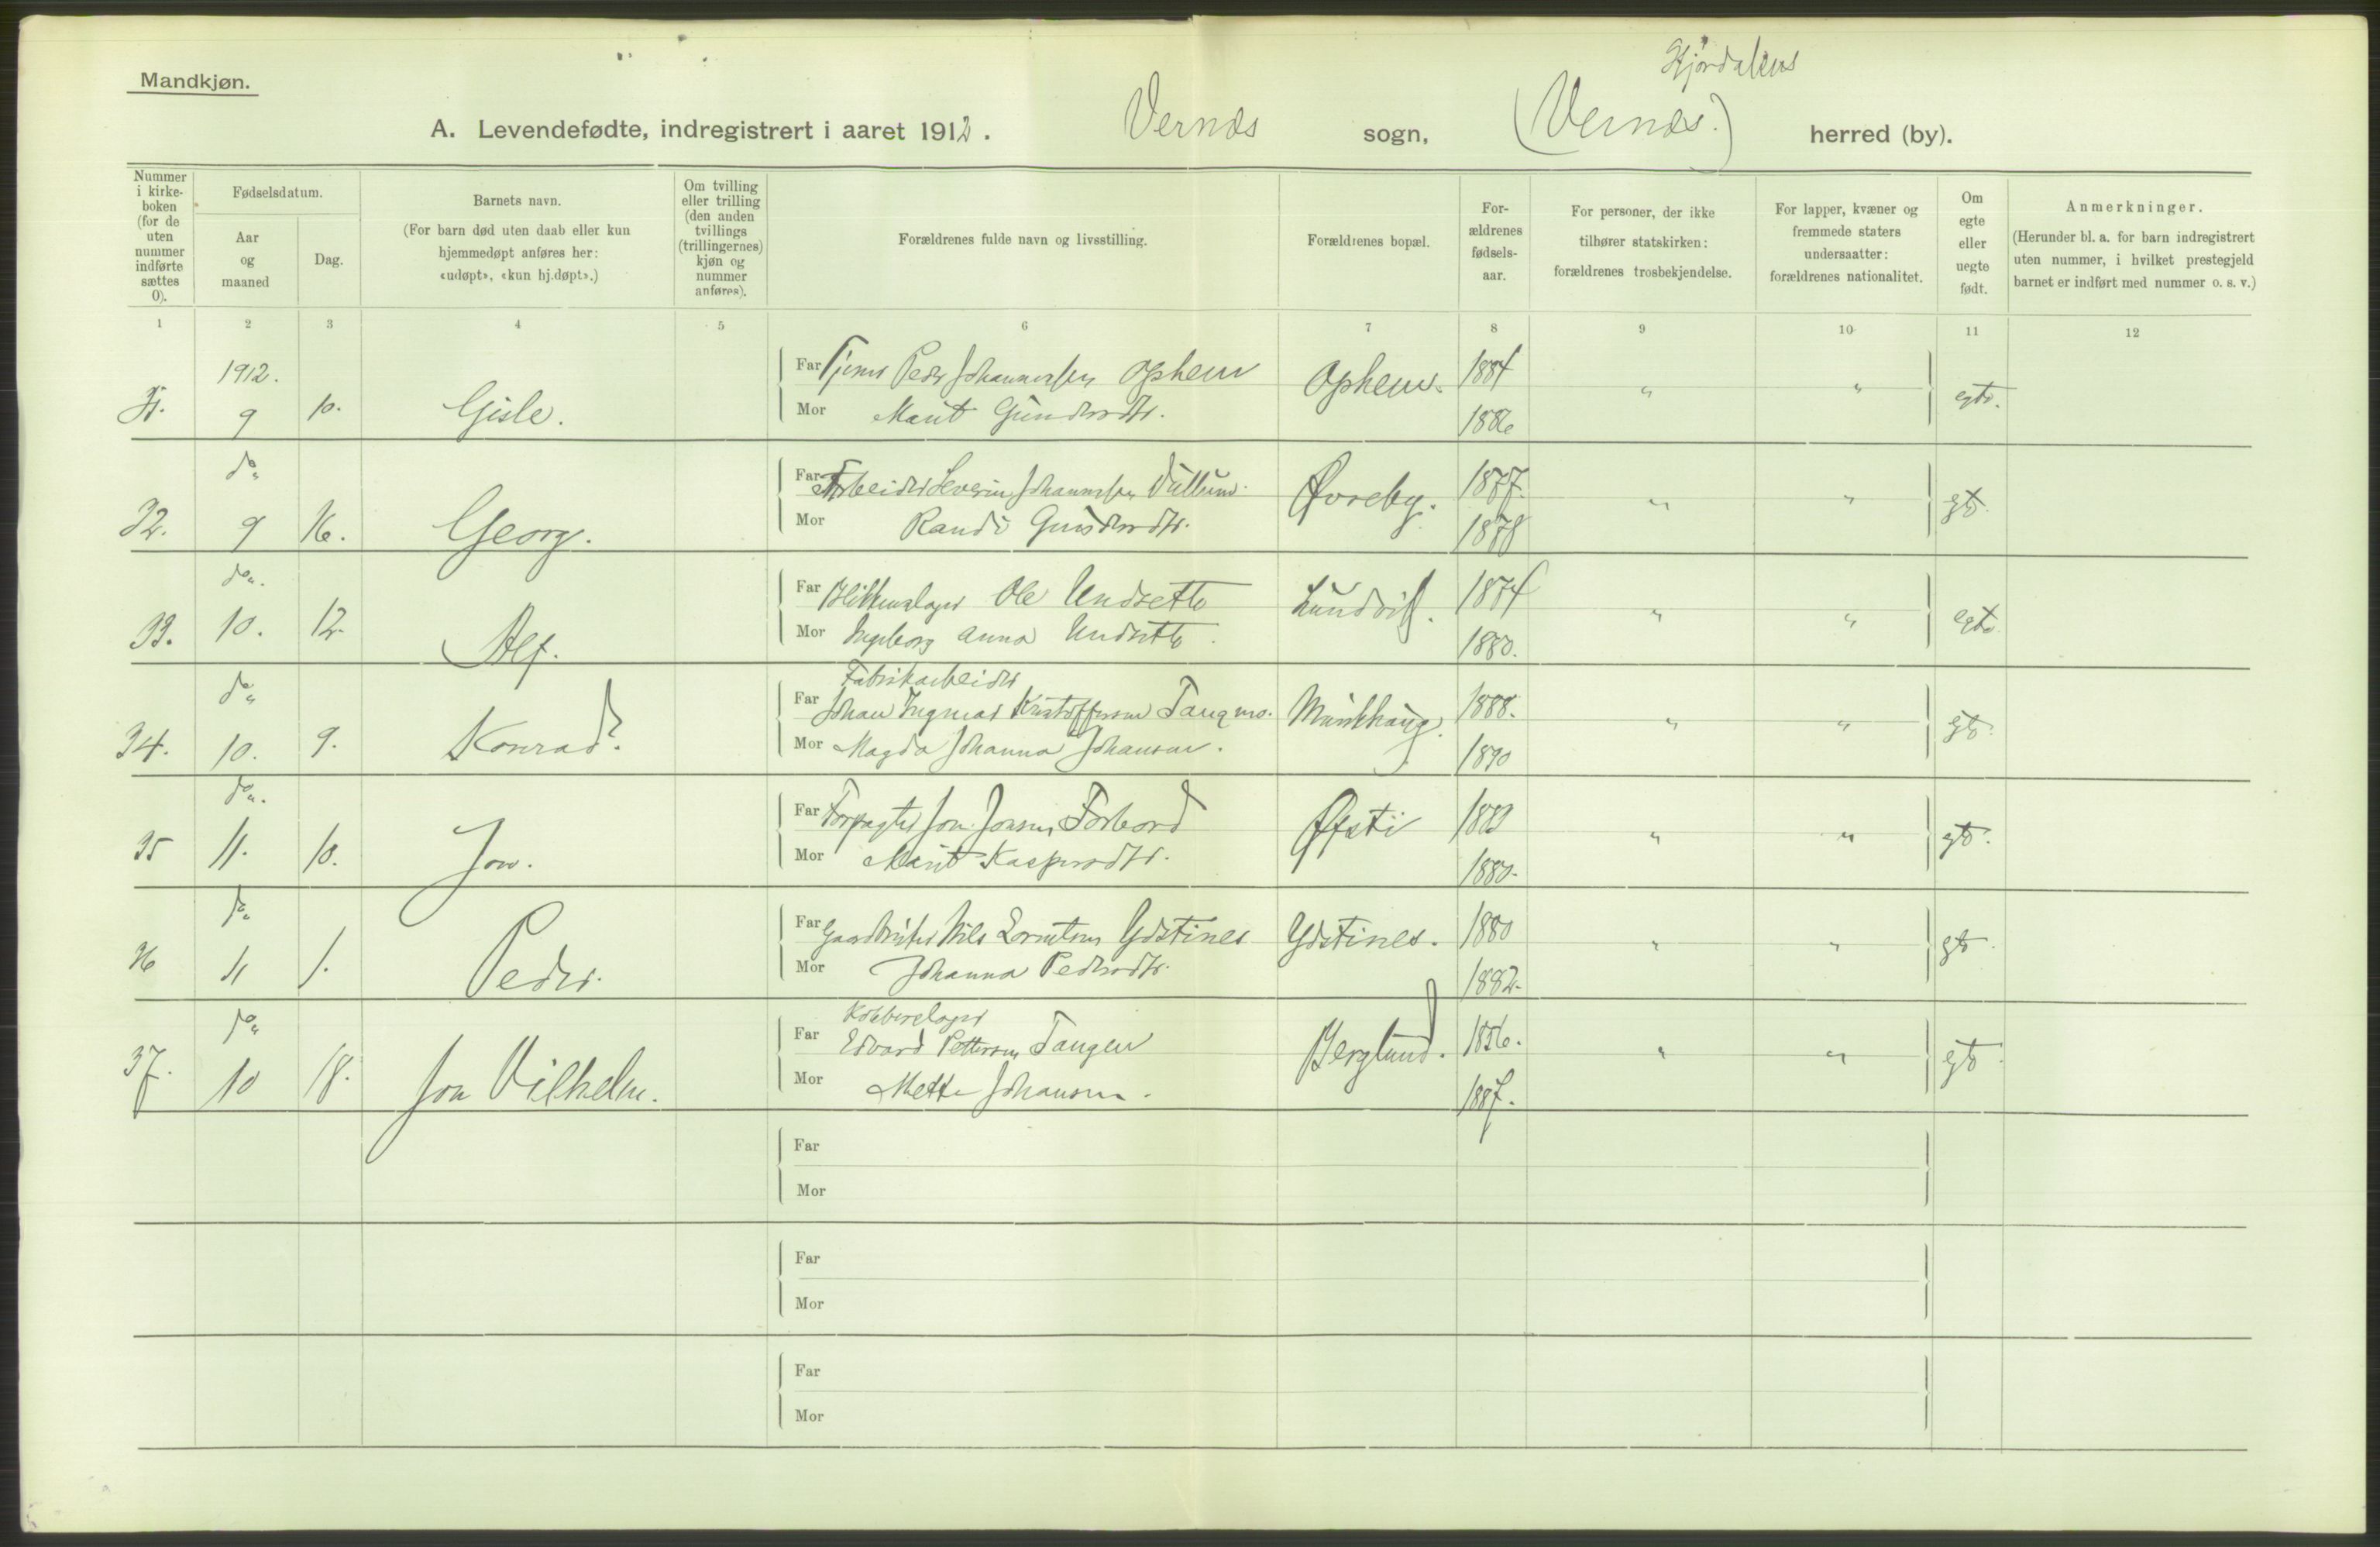 Mandkjøn.
Stjørdalens
A. Levendefødte, indregistrert i aaret 1912. Vernæs sogn, (Vernæs.) herred (by).
Nummer i kirke-boken (for de uten nummer indførte sættes 0).
Fødselsdatum.
Aar og maaned
Dag.
Barnets navn.
(For barn død uten daab eller kun hjemmedøpt anføres her: «udøpt», «kun hj.døpt».)
Om tvilling eller trilling (den anden tvillings (trillingernes) kjøn og nummer anføres).
Forældrenes fulde navn og livsstilling.
Forældrenes bopæl.
For-ældrenes fødsels-aar.
For personer, der ikke tilhører statskirken: forældrenes trosbekjendelse.
For lapper, kvæner og fremmede staters undersaatter: forældrenes nationalitet.
Om egte eller uegte født.
Anmerkninger.
(Herunder bl. a. for barn indregistrert uten nummer, i hvilket prestegjeld barnet er indført med nummer o. s. v.)
1 2 3 4 5 6 7 8 9 10 11 12
1912.
Far Tjener Peder Johannessen Ophem Ophem. 1884
31. 9 10. Gisle. " " egte.
Mor Marit Gundersdtr. 1886
do
Far Arbeider Severin Johannessen Vullum. Øvreby. 1877.
32. 9 16. Georg. " " gte.
Mor Randi Gundersdtr. 1878
do.
Far Blikkenslager Ole Undsette Lundvil. 1874
33. 10. 12. Alf. " " egte
Mor Ingeborg Anna Undsette. 1880.
do
Fabrikarbeider
Far Johan Ingmar Kristoffersen Tangmo. Munkhaug. 1888.
34. 10. 9. Konrad. " " gte.
Mor Magda Johanna Johansen. 1890
do.
Far Forpagter Jon Jonsen Forbord Øfsti 1883
35 11. 10. Jon. " " gte.
Mor Marit Kaspersdtr. 1880.
do
Far Gaardbruker Nils Lorntsen Ydstines Ydstines. 1880
36 11 1. Peder. " " gte.
Mor Johanna Pedersdtr. 1882.
do
Kobberslager
Far Edvard Pettersen Tangen Berglund. 1856.
37. 10 18. Jon Vilhelm. " " gte.
Mor Mette Johansen. 1887.
Far
Mor
Far
Mor
Far
Mor